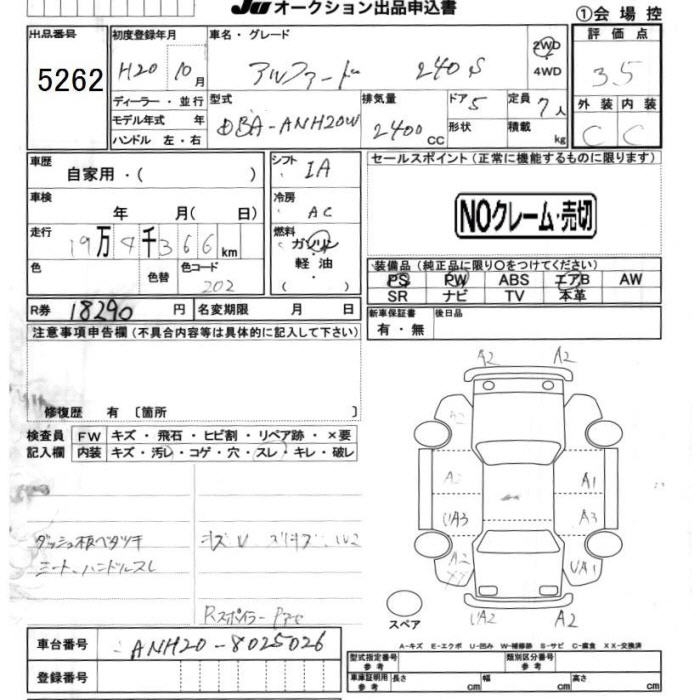 JU オークション出品申込書
①会場控
出品番号
5262
初度登録年月
H20 10月
車名・グレード
アルファード 240S
2WD
4WD
評価点
3.5
外装 内装
C C
ディーラー・並行
モデル年式 年
ハンドル 左・右
型式
DBA-ANH20W
排気量
2400cc
ドア 5
形状
定員 7人
積載 kg
車歴
自家用・( )
車検
年 月(日)
走行
19万4千366km
色
色替
色コード
202
シフト
IA
冷房
AC
燃料
ガソリン
軽油
( ・ )
セールスポイント(正常に機能するものに限ります)
NOクレーム・売切
装備品(純正品に限り○をつけてください)
PS PW ABS エアB AW
SR ナビ TV 本革
R券 18290円
名変期限 月 日
新車保証書
有・無
後日品
注意事項申告欄(不具合内容等は具体的に記入して下さい)
修復歴 有〔箇所 〕
検査員
記入欄
FW キズ・飛石・ヒビ割・リペア跡・×要
内装 キズ・汚レ・コゲ・穴・スレ・キレ・破レ
ダッシュ板ベタツキ
シート、ハンドルスレ
キズU
Rスポイラー
A2 A2
A2
A2 A1
UA3 A3
A2 UA1
UA2 A2
スペア
A-キズ E-エクボ U-凹み W-補修跡 S-サビ C-腐食 XX-交換済
車台番号
ANH20-8025026
登録番号
型式指定番号
参考
類別区分番号
参考
車庫証明用
参考
長さ cm 幅 cm 高さ cm